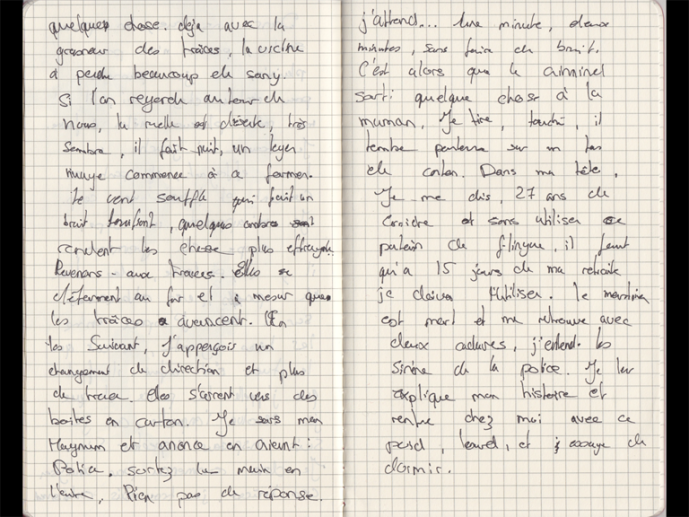 quelques chose. déjà avec la
grosseur des traices, la victime
à perdu beaucoup de sang.
Si l'on regarde autour de
nous, la ruelle est déserte, très
sombre, il fait nuit, un leger
nuage commence à a former.
Le vent souffla qui fait un
bruit, quelques ombres sont
rendent les chose plus effrayante.
Revenons - aux traces. Elles se
déforment au fur et a mesur que
les traices avancent. En
les Suivant, J'apperçois un
changement de direction et plus
de trace. Elles s'arrent vers des
boites en carton. Je sors mon
Magnum et anonce en criant :
Police, sortez les main en
l'air, Rien pas de réponse.
j'attend... Une minute, deux
minutes, sans faire de bruit.
C'est alors que le criminel
sorti quelque chose à la
main. Je tire, touché, il
tombe par terre sur un tas
de carton. Dans ma tête,
Je me dis, 27 ans de
carrière et sans utiliser ce
putain de flingue, il faut
qu'a 15 jours de ma retraite
je doive l'utiliser. le
est mort et me retrouve avec
deux cadavres, j'entend les
Sirène de la police. Je leur
explique mon histoire et
rentre chez moi avec ce
poid, lourd, et j'essaye de
dormir.